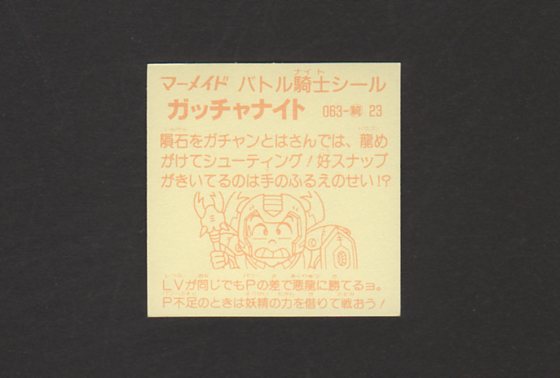 マーメイド バトル騎士シール
ナイト
ガッチャナイト 063-
23
隕石をガチャンとはさんでは、龍め
がけてシューティング！好スナップ
がきいてるのは手のふるえのせい!?
LVが同じでもPの差で悪龍に勝てるヨ。
P不足のときは妖精の力を借りて戦おう！